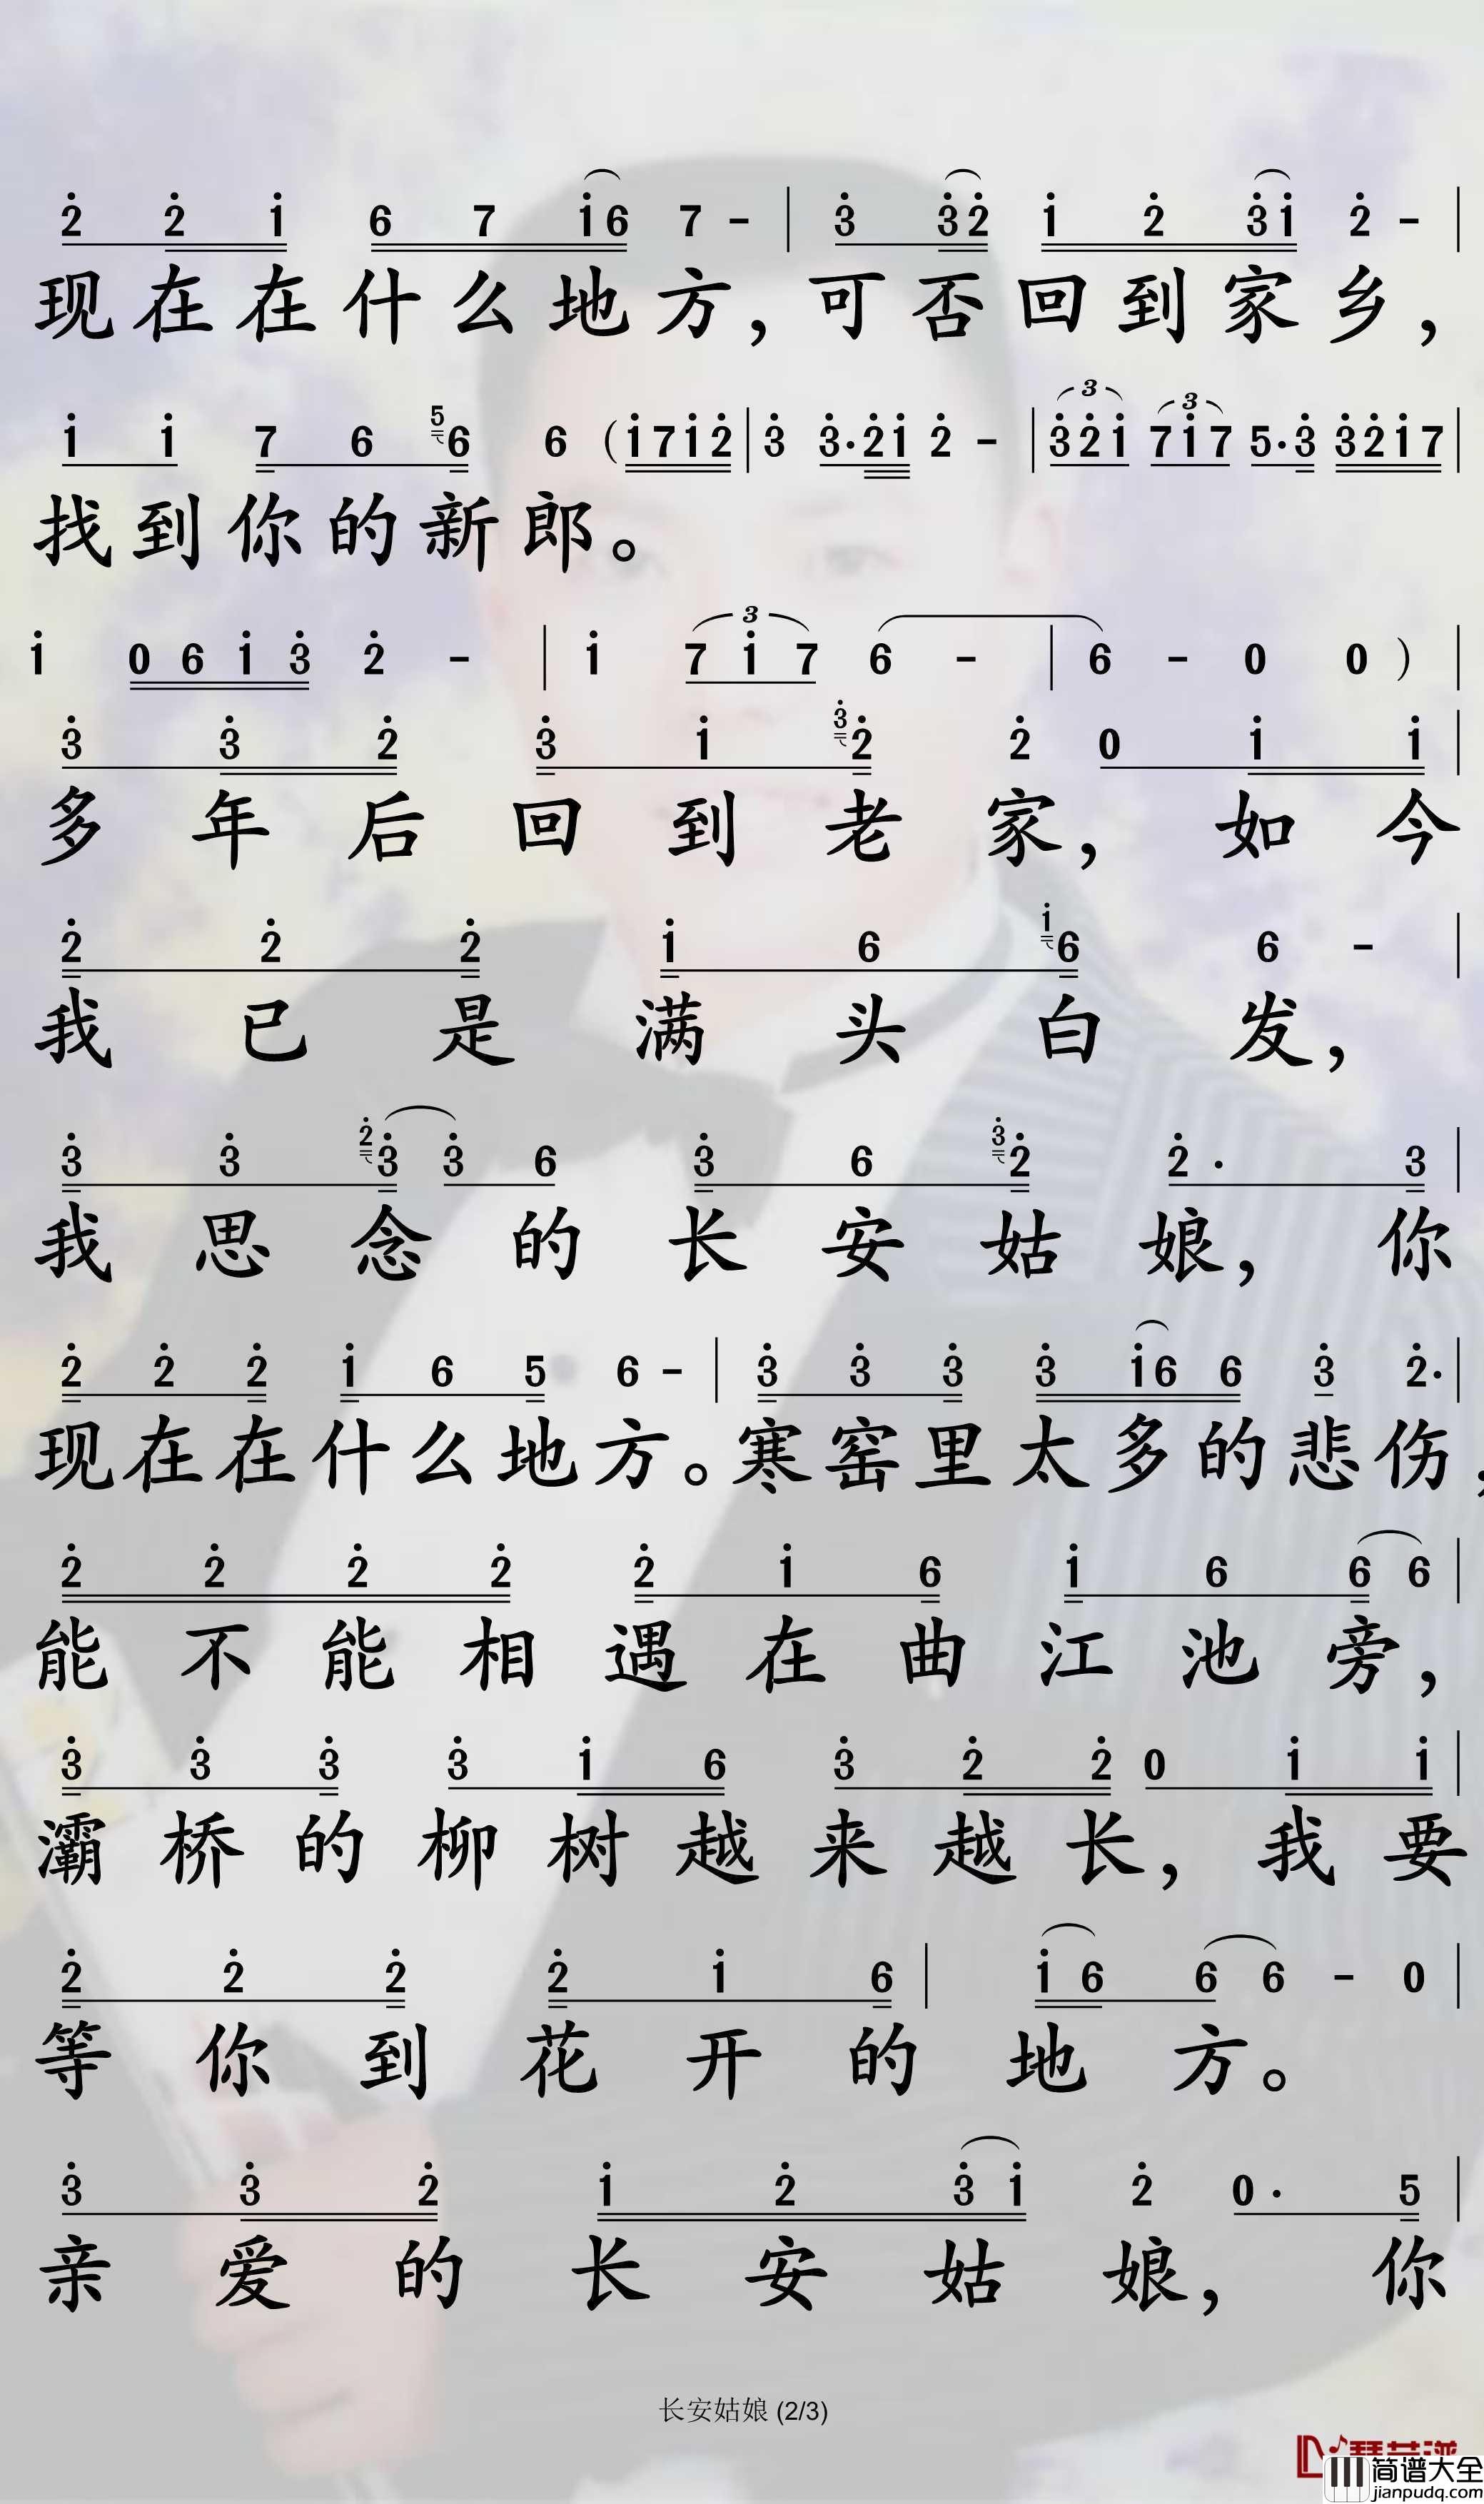 2 2 1 6 7 1 6 7 - | 3 3 2 1 2 3 1 2 - |
现在在什么地方，可否回到家乡，
1 1 7 6 5 6 6 ( 1 7 1 2 | 3 3 · 2 1 2 - | 3 2 1 7 1 7 5 · 3 3 2 1 7 |
找到你的新郎。
1 0 6 1 3 2 - | 1 7 1 7 6 - | 6 - 0 0 ) |
3 3 2 3 1 3 2 2 0 1 1 |
多年后回到老家，如今
2 2 2 1 6 1 6 6 - |
我已是满头白发，
3 3 2 3 3 6 3 6 3 2 2 · 3 |
我思念的长安姑娘，你
2 2 2 1 6 5 6 - | 3 3 3 3 1 6 6 3 2 · |
现在在什么地方。寒窑里太多的悲伤，
2 2 2 2 2 1 6 1 6 6 6 |
能不能相遇在曲江池旁，
3 3 3 3 1 6 3 2 2 0 1 1 |
灞桥的柳树越来越长，我要
2 2 2 2 1 6 | 1 6 6 6 - 0 |
等你到花开的地方。
3 3 2 1 2 3 1 2 0 · 5 |
亲爱的长安姑娘，你
长安姑娘 (2/3)
简谱大全
jianpudq.com